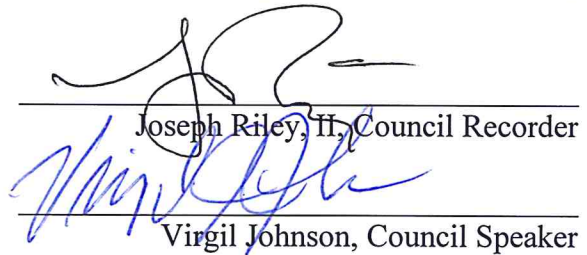 Joseph Riley, II, Council Recorder
Virgil Johnson, Council Speaker